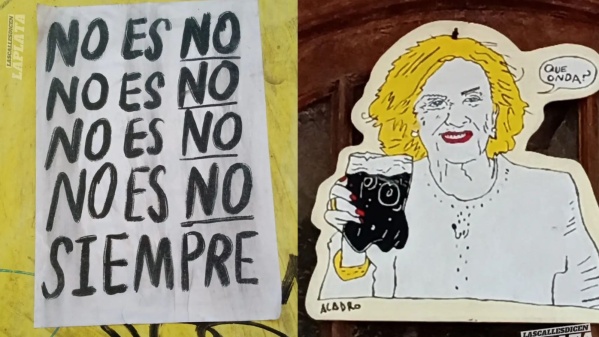 LASCALLESDICEN
LAPLATA
NO ES NO
NO ES NO
NO ES NO
NO ES NO
SIEMPRE
QUE
ONDA?
ACADRO
LASCALLESDICEN